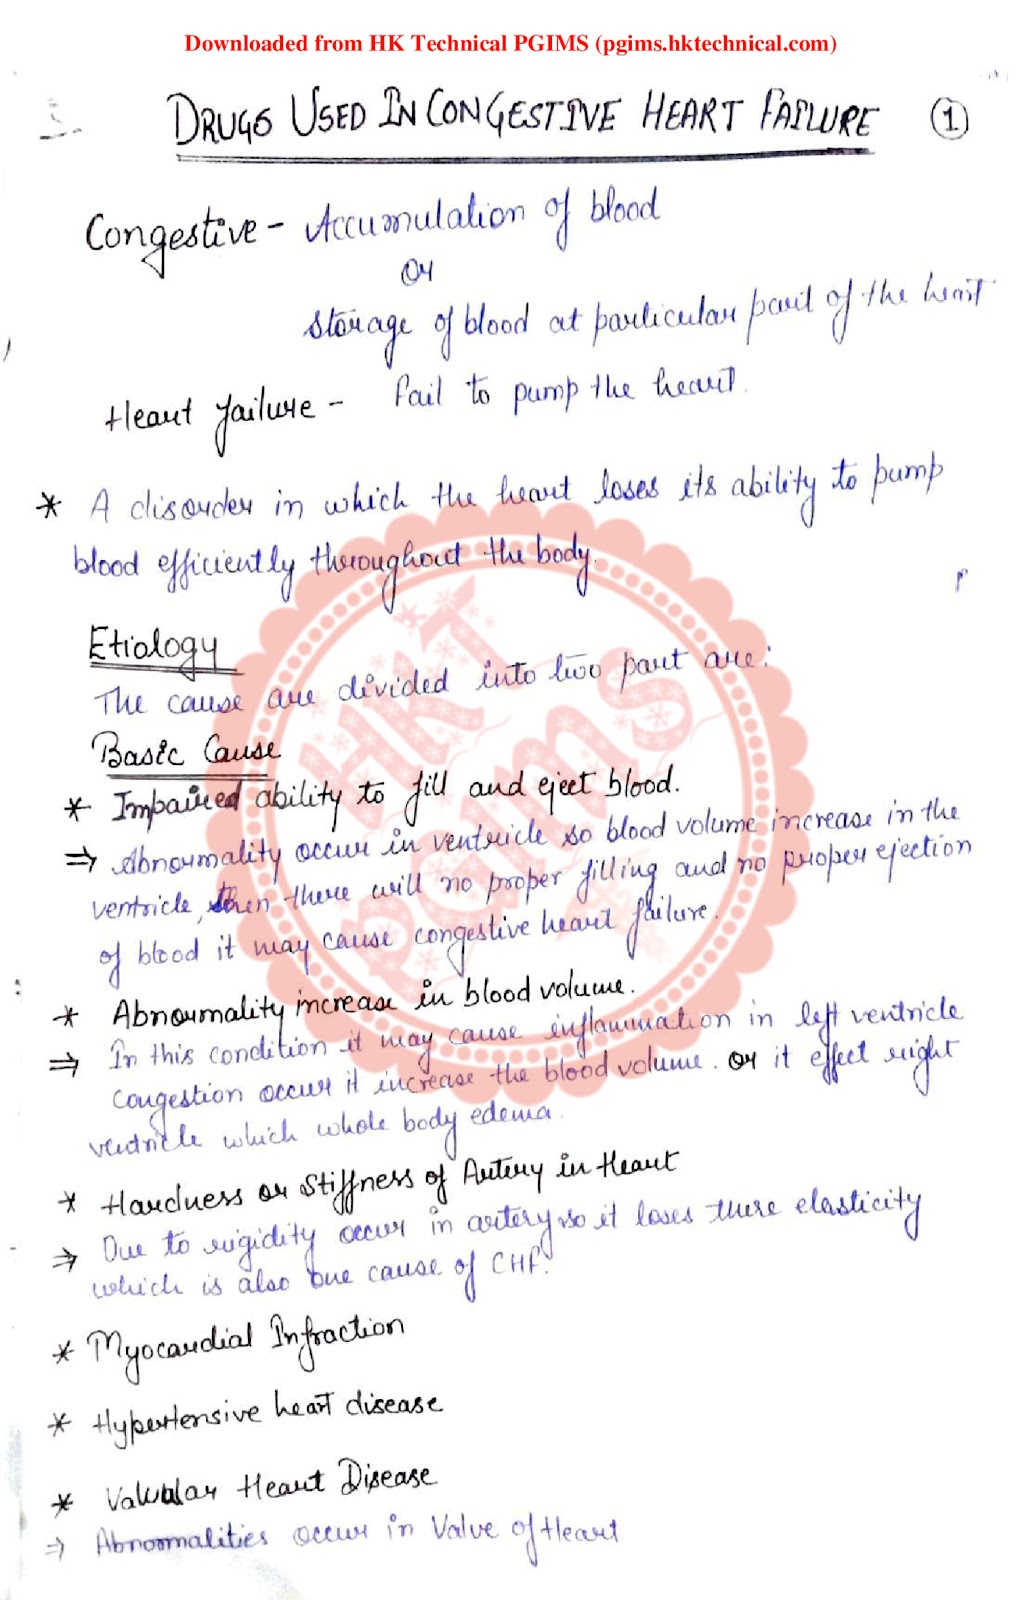 Downloaded from HK Technical PGIMS (pgims.hktechnical.com)
DRUGS USED IN CONGESTIVE HEART FAILURE 1
Congestive - Accumulation of blood
or
storage of blood at particular part of the heart
Heart failure - Fail to pump the heart.
* A disorder in which the heart loses its ability to pump
blood efficiently throughout the body.
Etiology
The cause are divided into two part are:
Basic Cause
* Impaired ability to fill and eject blood.
⇒ Abnormality occur in ventricle so blood volume increase in the
ventricle, then there will no proper filling and no proper ejection
of blood it may cause congestive heart failure.
* Abnormality increase in blood volume.
⇒ In this condition it may cause inflammation in left ventricle
congestion occur it increase the blood volume. or it effect right
ventricle which whole body edema.
* Hardness or stiffness of Artery in Heart
⇒ Due to rigidity occur in artery so it loses there elasticity
which is also one cause of CHF.
* Myocardial Infraction
* Hypertensive heart disease
* Valvular Heart Disease
⇒ Abnormalities occur in Valve of Heart
HKT
PGIMS
PGIMS